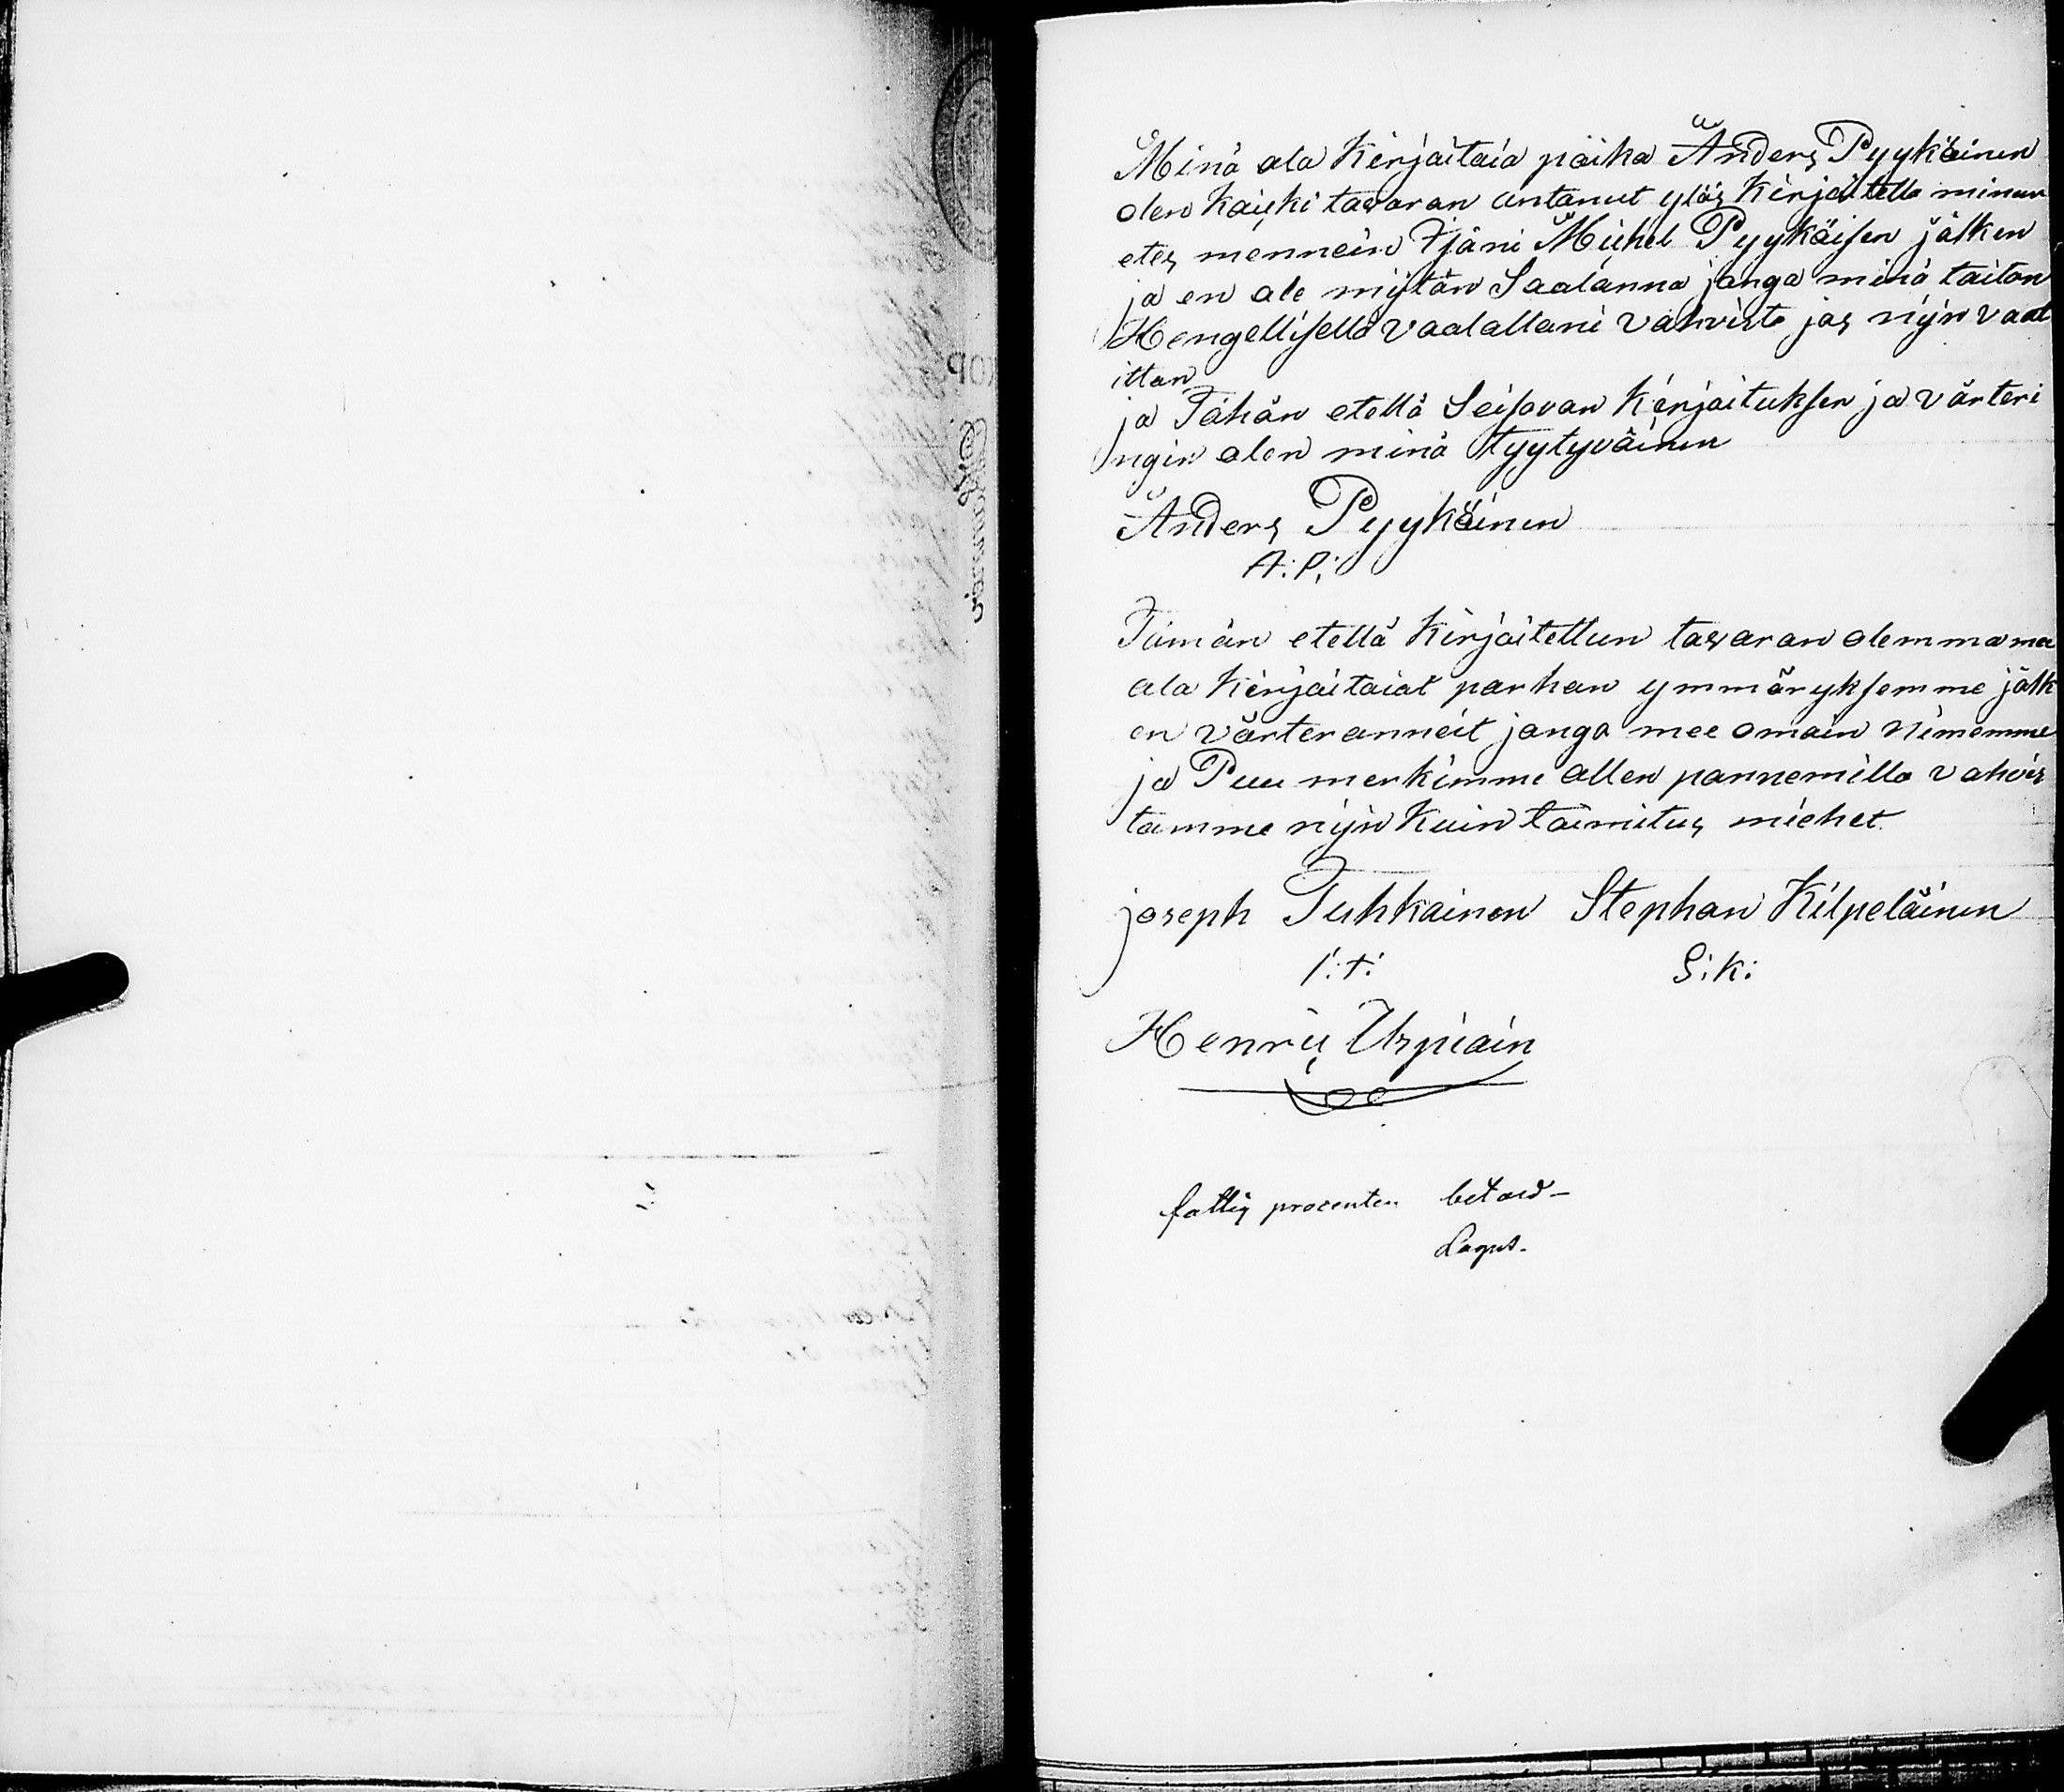 Minä ala Kirjaitaia paika Änders Pyykäinen
olen kaicki tavaran antanut ylös Kirjaitella minun
etes mennein Isäni Michel Pyykäisen jälken
ja en ole mijtän Saalanna jonga minä taiton
Hengellisellä Vaalallani vahvista jos nijn vaat
ittan
ja Tähän etellä Seisovan Kirjaituksen ja värteri
ngin olen minä tyytyväinen
Änders Pyykäinen
A:P:
Tämän etellä Kirjaitettun tavaran olemma me
ala Kirjaitaiat parhan ymmäryksemme jälk
en värteranneit jonga mee omain Nimemme
ja Puu merkimme allen pannemilla vahvis
tamme nijn Kuin taimitus miehet
joseph Tuhkainen Stephan Kilpeläinen
I:t: S:K:
Henric Urpiain
fattig procenten betald
Lagus.